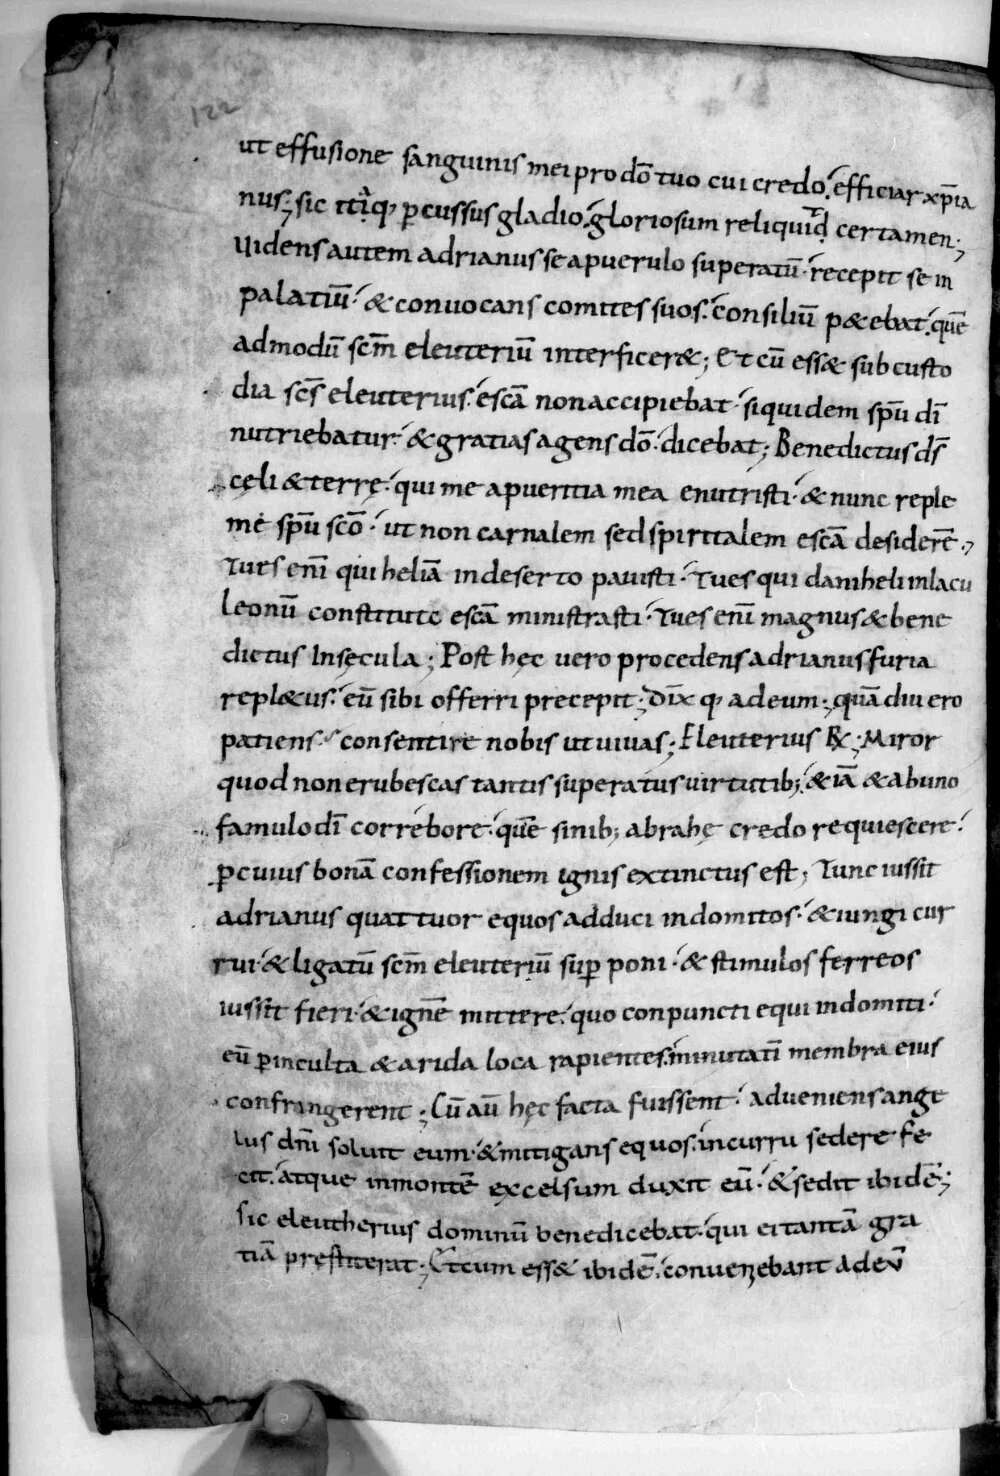 122
ut effusione sanguinis mei pro dō tuo cui credo. efficiar xp̄ia
nus; sic itaq; ꝑcussus gladio. gloriosum reliquid certamen;
Uidens autem adrianus se a puerulo superatū. recepit se in
palatiū. & conuocans comites suos. consiliū p&ebat. quē
admodū scm̄ eleuteriū interficer&; Et cū ess& sub custo
dia scs̄ eleuterius. escā non accipiebat. siquidem spū dī
nutriebatur. & gratias agens dō. dicebat; Benedictus ds̄
cęli & terrę. qui me a pueritia mea enutristi. & nunc reple
me spū scō. ut non carnalem sed spiritalem escā desiderē;
Tu es enī qui heliā in deserto pauisti. Tu es qui daniheli in lacu
leonū constituto escā ministrasti. Tu es enī magnus & bene
dictus In sęcula; Post hęc uero procedens adrianus furia
repl&us. eū sibi offerri precepit; Dix̄ q; ad eum; quādiu ero
patiens. consentire nobis ut uiuas; Eleuterius R̷; Miror
quod non erubescas tantis superatus uirtutib; & iā & ab uno
famulo dī correbore. quē sinib; abrahę credo requiescere.
ꝑ cuius bonā confessionem ignis extinctus est; Tunc iussit
adrianus quattuor equos adduci indomitos. & iungi cur
rui. & ligatū scm̄ eleuteriū suꝑ poni. & stimulos ferreos
iussit fieri. & ignē mittere. quo conpuncti equi indomiti.
eū ꝑ inculta & arida loca rapientes. minutatī membra eius
confrangerent; Cū aū hęc facta fuissent. adueniens ange
lus dn̄i soluit eum. & mitigans equos. in curru sedere fe
cit. atque in montē excelsum duxit eū. & sedit ibidē;
sic eleutherius dominū benedicebat. qui ei tantā gra
tiā prestiterat; Et cum ess& ibidē. conueniebant ad eū